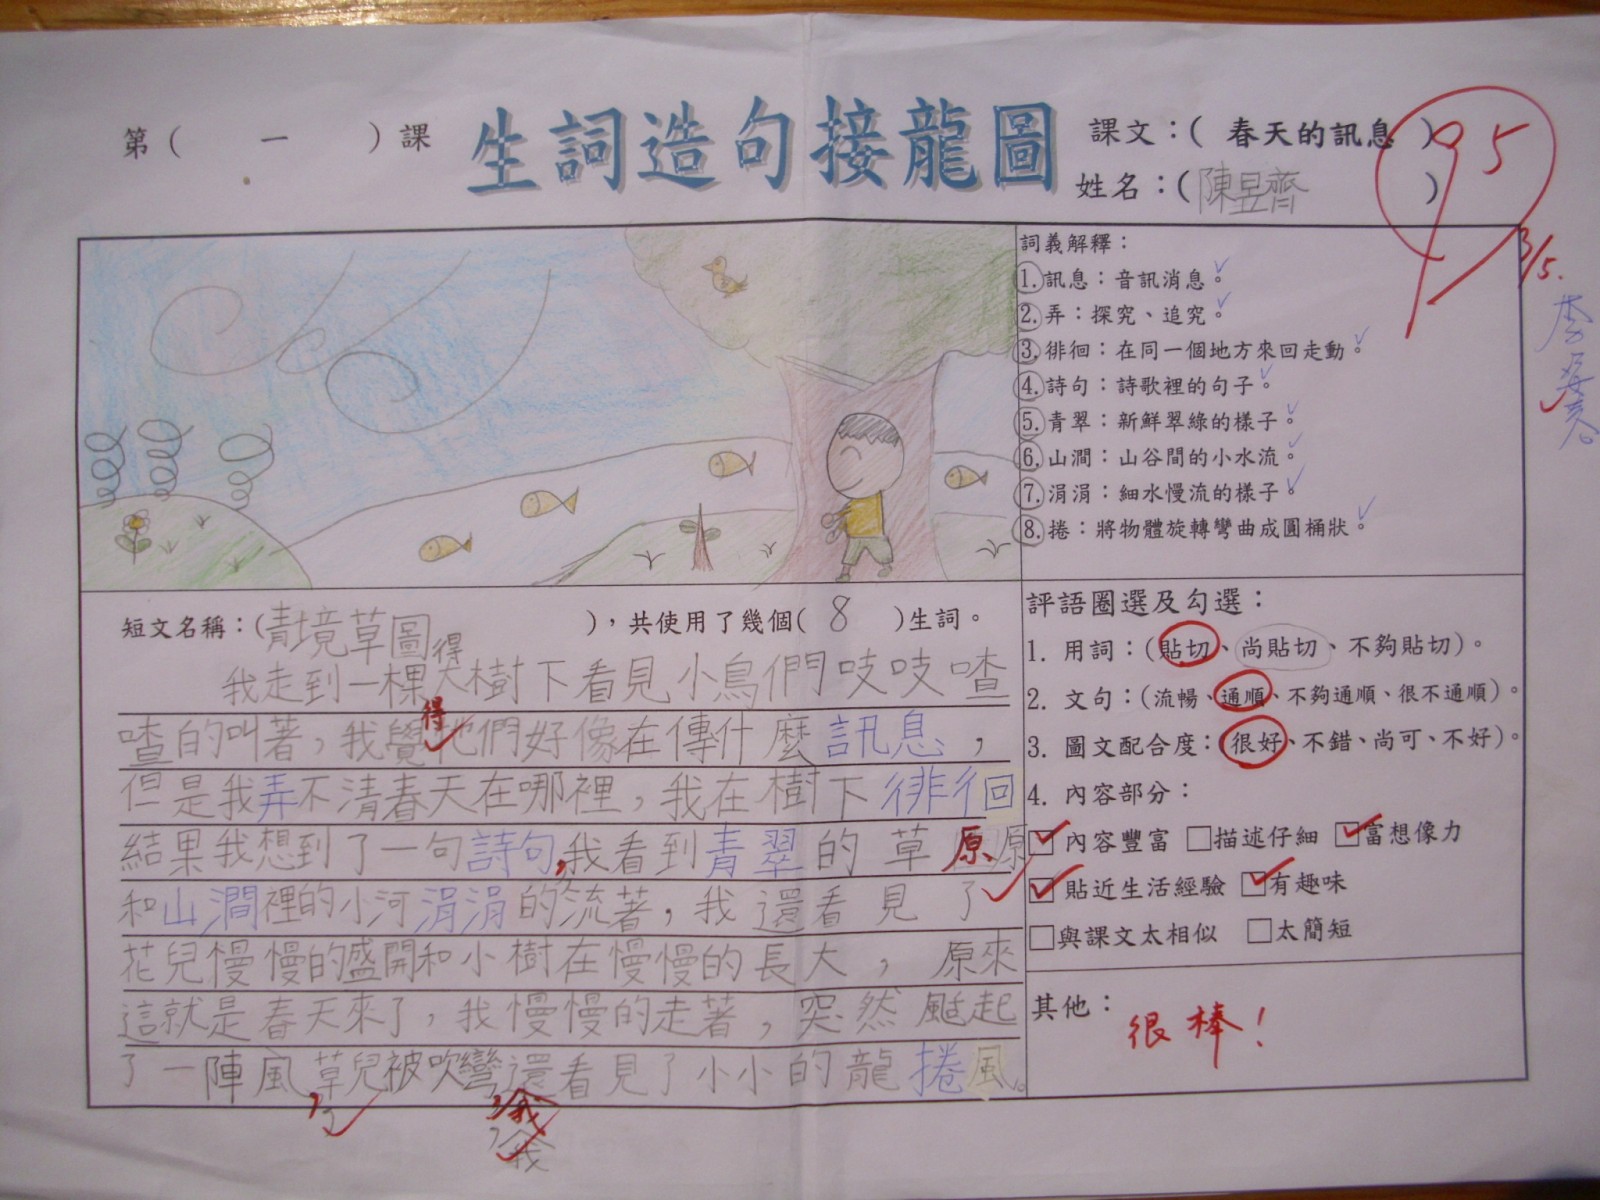 第（ 一 ）課
生詞造句接龍圖
課文：( 春天的訊息 )
姓名：(陳昱齊 )
95
3/5.
詞義解釋：
1.訊息：音訊消息。
2.弄：探究、追究。
3.徘徊：在同一個地方來回走動。
4.詩句：詩歌裡的句子。
5.青翠：新鮮翠綠的樣子。
6.山澗：山谷間的小水流。
7.涓涓：細水慢流的樣子。
8.捲：將物體旋轉彎曲成圓桶狀。
短文名稱：(青境草圖 )，共使用了幾個( 8 )生詞。
得
我走到一棵大樹下看見小鳥們吱吱喳
喳的叫著，我覺得牠們好像在傳什麼訊息，
但是我弄不清春天在哪裡，我在樹下徘徊
結果我想到了一句詩句，我看到青翠的草原原
和山澗裡的小河涓涓的流著，我還看見了
花兒慢慢的盛開和小樹在慢慢的長大，原來
這就是春天來了，我慢慢的走著，突然颳起
了一陣風草兒被吹彎還看見了小小的龍捲風。
，了
，我
，我
評語圈選及勾選：
1. 用詞：(貼切、尚貼切、不夠貼切)。
2. 文句：(流暢、通順、不夠通順、很不通順)。
3. 圖文配合度：(很好、不錯、尚可、不好)。
4. 內容部分：
☑內容豐富 □描述仔細 ☑富想像力
☑貼近生活經驗 ☑有趣味
□與課文太相似 □太簡短
其他：
很棒！